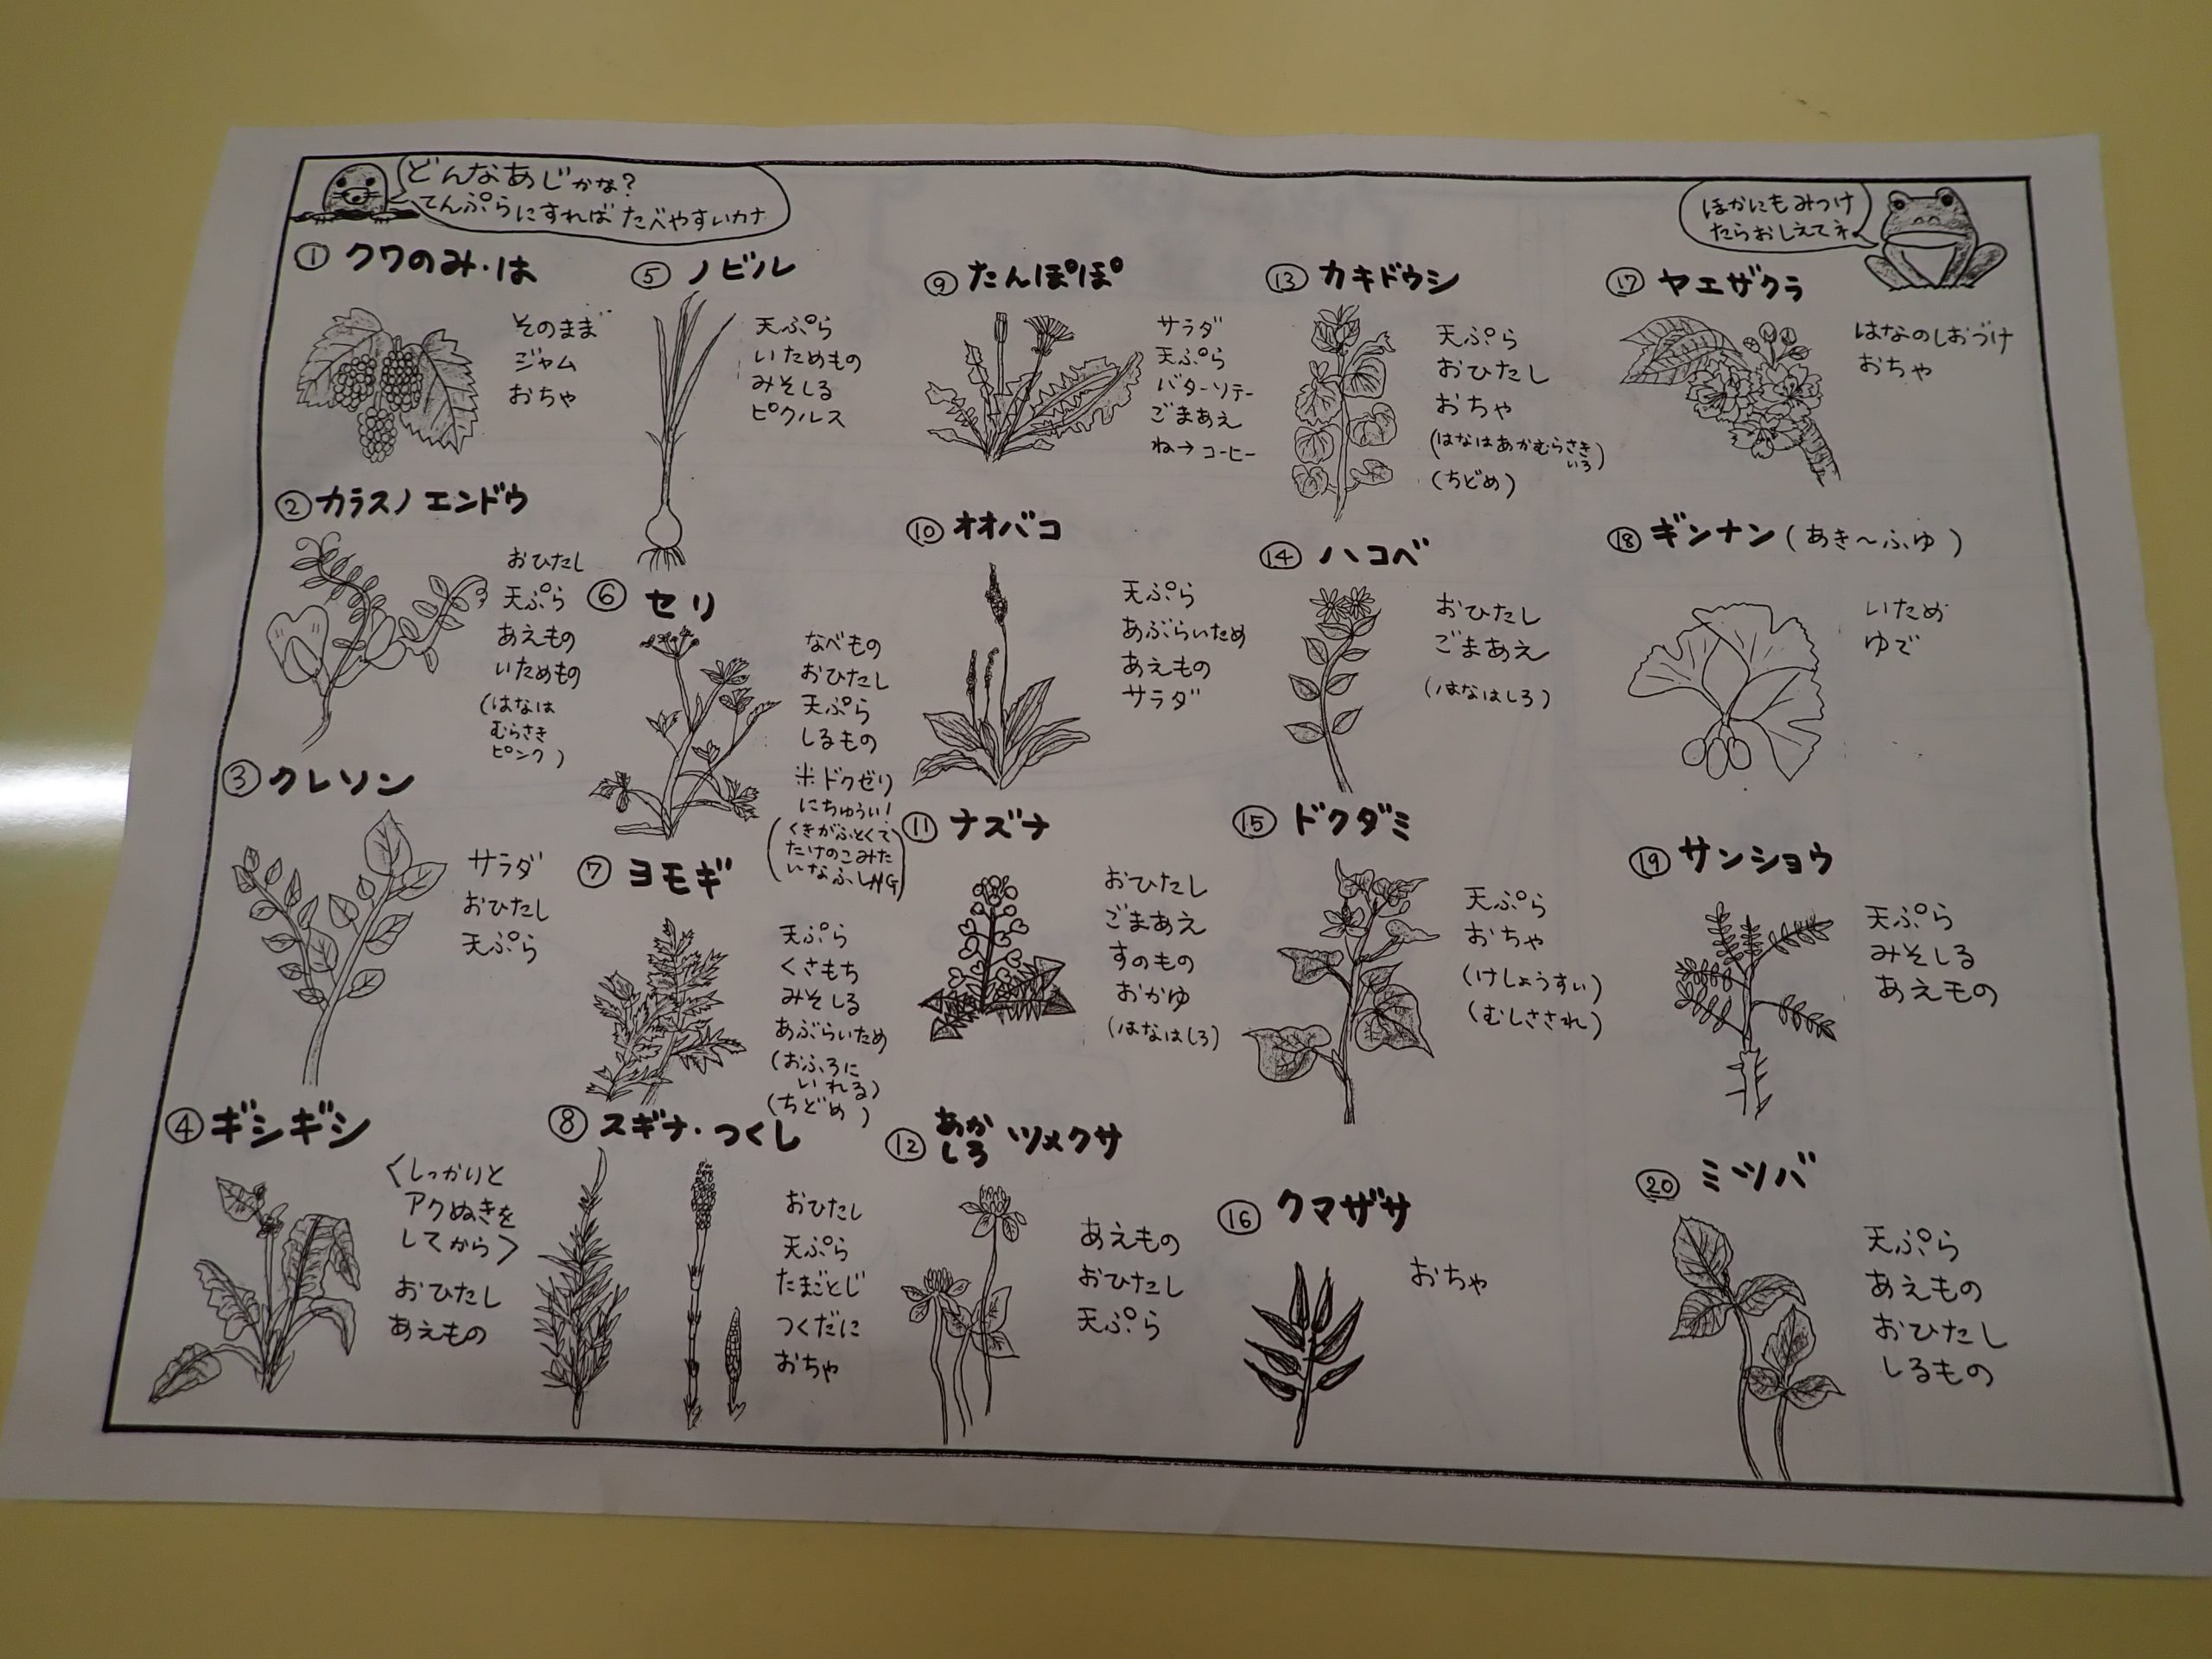 どんなあじかな?
てんぷらにすれば たべやすいカナ
ほかにもみつけ
たらおしえてネ
① クワのみ・は
そのまま
ジャム
おちゃ
② カラスノエンドウ
おひたし
天ぷら
あえもの
いためもの
(はなは
むらさき
ピンク)
③ クレソン
サラダ
おひたし
天ぷら
④ ギシギシ
〈しっかりと
アクぬきを
してから〉
おひたし
あえもの
⑤ ノビル
天ぷら
いためもの
みそしる
ピクルス
⑥ セリ
なべもの
おひたし
天ぷら
しるもの
※ドクゼリ
にちゅうい!
(くきがふとくて
たけのこみた
いなふしNG)
⑦ ヨモギ
天ぷら
くさもち
みそしる
あぶらいため
(おふろに
いれる)
(ちどめ)
⑧ スギナ・つくし
おひたし
天ぷら
たまごとじ
つくだに
おちゃ
⑨ たんぽぽ
サラダ
天ぷら
バターソテー
ごまあえ
ね→コーヒー
⑩ オオバコ
天ぷら
あぶらいため
あえもの
サラダ
⑪ ナズナ
おひたし
ごまあえ
すのもの
おかゆ
(はなはしろ)
⑫ あか
しろ ツメクサ
あえもの
おひたし
天ぷら
⑬ カキドウシ
天ぷら
おひたし
おちゃ
(はなはあかむらさき
いろ)
(ちどめ)
⑭ ハコベ
おひたし
ごまあえ
(はなはしろ)
⑮ ドクダミ
天ぷら
おちゃ
(けしょうすい)
(むしさされ)
⑯ クマザサ
おちゃ
⑰ ヤエザクラ
はなのしおづけ
おちゃ
⑱ ギンナン(あき〜ふゆ)
いため
ゆで
⑲ サンショウ
天ぷら
みそしる
あえもの
⑳ ミツバ
天ぷら
あえもの
おひたし
しるもの